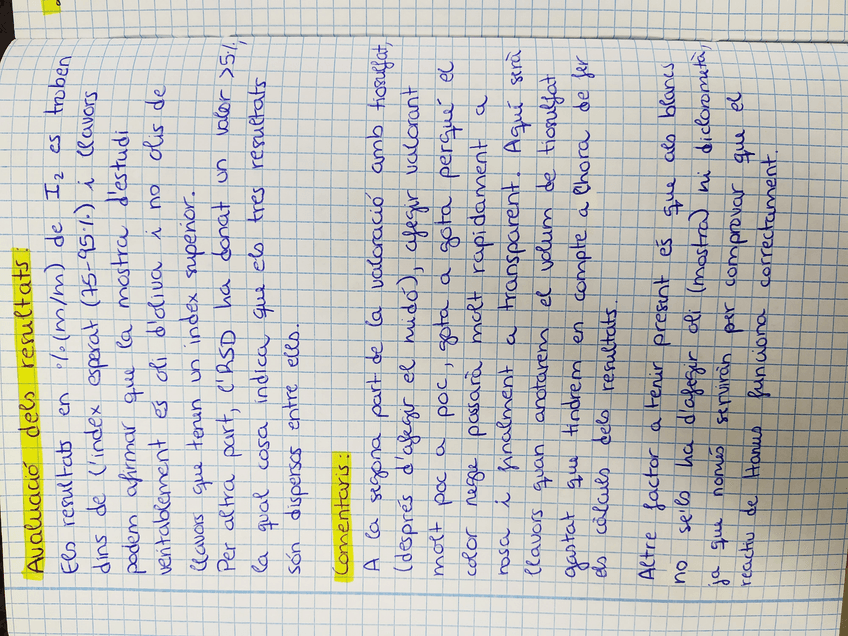 Avaluació dels resultats:
Els resultats en %(m/m) de I₂ es troben
dins de l'index esperat (75-95%) i llavors
podem afirmar que la mostra d'estudi
veritablement és oli d'oliva i no olis de
llavors que tenen un index superior.
Per altra part, l'RSD ha donat un valor >5%,
la qual cosa indica que els tres resultats
són dispersos entre ells.
Comentaris:
A la segona part de la valoració amb tiosulfat,
(després d'afegir el midó), afegir valorant
molt poc a poc, gota a gota perquè el
color negre passarà molt rapidament a
rosa i finalment a transparent. Aquí serà
llavors quan anotarem el volum de tiosulfat
gastat que tindrem en compte a l'hora de fer
els càlculs dels resultats.
Altre factor a tenir present és que als blancs
no se'ls ha d'afegir oli (mostra) ni diclorometà,
ja que només serviran per comprovar que el
reactiu de Hanus funciona correctament.